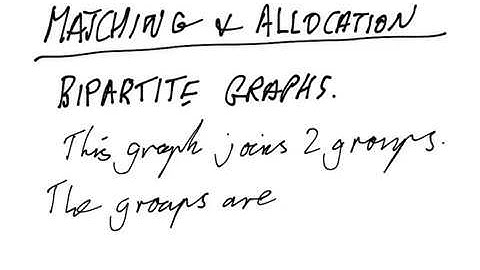 MATCHING & ALLOCATION
BIPARTITE GRAPHS.
This graph joins 2 groups.
The groups are